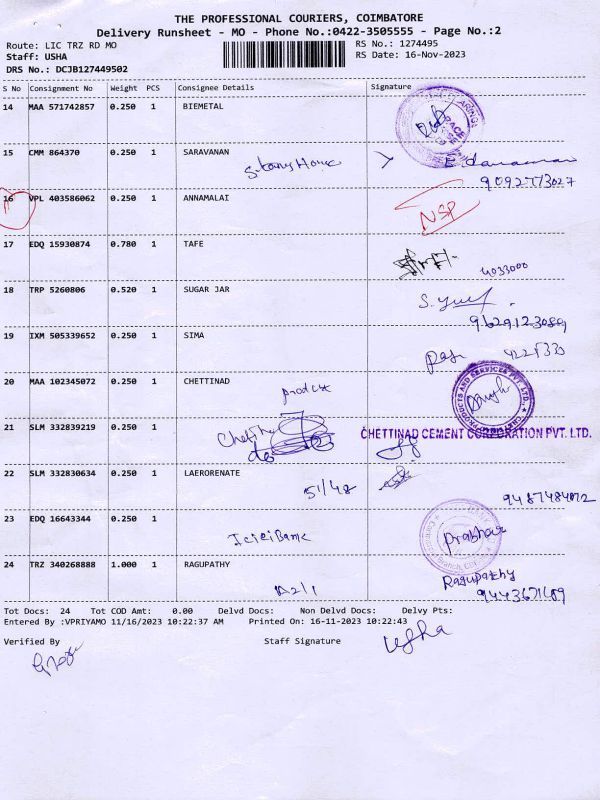 THE PROFESSIONAL COURIERS, COIMBATORE
Delivery Runsheet - MO - Phone No.:0422-3505555 - Page No.:2
Route: LIC TRZ RD MO
RS No.: 1274495
Staff: USHA
RS Date: 16-Nov-2023
DRS No.: DCJB127449502
S No Consignment No Weight PCS Consignee Details Signature
14 MAA 571742857 0.250 1 BIEMETAL
15 CMM 864370 0.250 1 SARAVANAN
9092773027
16 VPL 403586062 0.250 1 ANNAMALAI
NSP
17 EDQ 15930874 0.780 1 TAFE
4033000
18 TRP 5260806 0.520 1 SUGAR JAR
9629123089
19 IXM 505339652 0.250 1 SIMA
20 MAA 102345072 0.250 1 CHETTINAD
product
21 SLM 332839219 0.250 1
CHETTINAD CEMENT CORPORATION PVT. LTD.
22 SLM 332830634 0.250 1 LAERORENATE
51/48
9487484072
23 EDQ 16643344 0.250 1
Icici Bank
Prabhar
24 TRZ 340268888 1.000 1 RAGUPATHY
A2/1
Ragupathy
9443671689
Tot Docs: 24 Tot COD Amt: 0.00 Delvd Docs: Non Delvd Docs: Delvy Pts:
Entered By :VPRIYAMO 11/16/2023 10:22:37 AM Printed On: 16-11-2023 10:22:43
Verified By Staff Signature
Usha